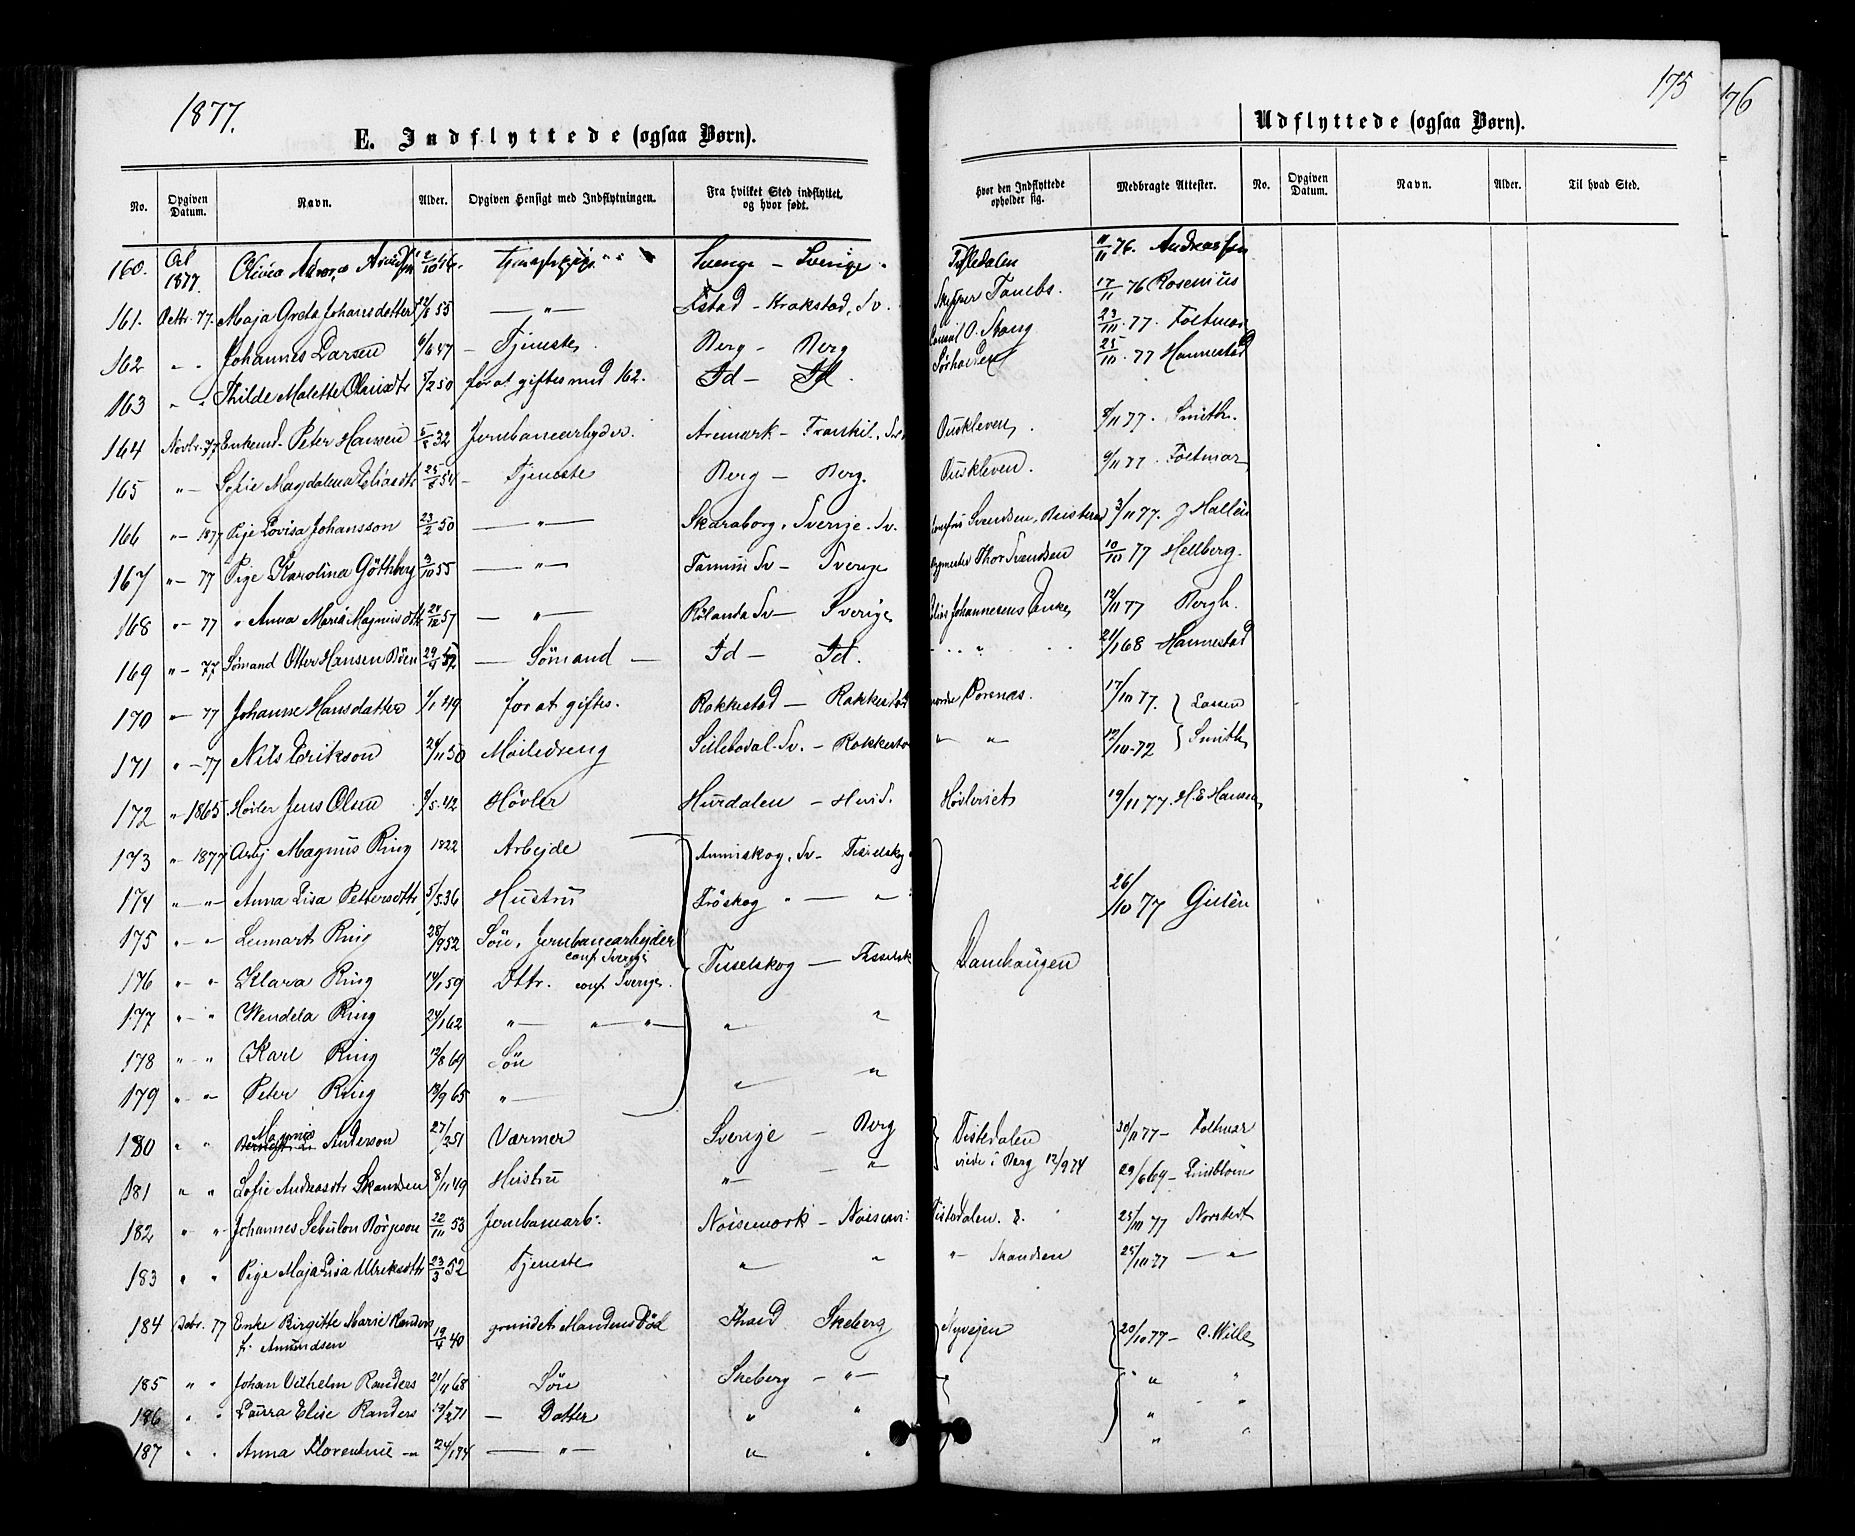 1877.
175
176
E. Indflyttede (ogsaa Børn).
Udflyttede (ogsaa Børn).
No. Opgiven Datum. Navn. Alder. Opgiven Hensigt med Indflytningen. Fra hvilket Sted indflyttet og hvor født. Hvor den Indflyttede opholder sig. Medbragte Attester. No. Opgiven Datum. Navn. Alder. Til hvad Sted.
160. 1877. Olivia 2/10 Svenge - Sverige. Tistedalen 11/11 76.
161. Octbr. 77. Maja Greta Johansdatter 55 - " - Krokstad, Sv. 17/11 76 Rosenius
162 " " Johannes Larsen 6/6 47 - Tjeneste. Berg - Berg O. Stang 23/10. 77. Foltmar
163 " " Thilde Malette 50 for at giftes med 162. Id - Id. 25/10. 77 Hannestad
164 Novbr. 77 Enkemd. Peter Hansen 32 Jernbanearbeider. Aremark - Ouskleven, 8/11 77. Smith.
165 " - Sofie Magdalena 54 - Tjeneste Berg - Berg. Ouskleven. 9/11 77. Foltmar
166 " - 1877 Pige Lovisa Johansson 23/2 50 - " - Skaraborg, Sverige. Sv. Svendsen, 3/11 77. J Hallén
167 " - 77 Pige Karolina Göthberg 3/10 55 - " - Tanum Sv - Sverige Thor Svendsen 10/10 77 Hellberg.
168 " - 77 " Anna Maria Magnusdttr 57 - " - Rölanda Sv - Sverige Johannesens Enke, 12/11 77 Bergh.
169 " - 77 Sømand Otter Hansen Bøen 29/4 52 - Sømand - Id - Id. 21/1 68 Hannestad
170 " - 77 Johanne Hansdatter 1/1 49 for at giftes. Rakkestad - Rakkestad 17/10 77. Lassen
171 " - 77 Nils Erikson 24/11 50 Møiledreng Sillebodal. Sv. - Rakkestad " " 12/10. 72 Smith
172 " 1865 Høvler Jens Olsen 42 Høvler Hurdalen - Hurd. Høvleriet 19/11 77. H. E Hansen
173 " 1877 Arbj Magnus Ring 1822 Arbejde Anniskog, Sv - Tisselskog
174 " - " - Anna Lisa Pettersdttr 5/5. 36 Hustru Fröskog " - " 26/10 77 Gilén
175 " - " Lennart Ring 28/9 52 Søn, Jernbanearbejder
conf Sverige
176 " - " Klara Ring 14/1 59 Dttr. conf Sverige. Tisselskog - Tisselsk Damhaugen
177 " - " Wendela Ring 24/1 62 " - " - " - " "
178 " - " Karl Ring 12/8 69 Søn
179 " - " Peter Ring 13/9 65 " - " "
180 " " Magnus Anderson 27/2 51 Værmer Sverige - Berg Tistedalen 30/11 77 - Foltmar
181 " " Sofie Andreasdtr Skansen 8/11 49 Hustru " - " viede i Berg 12/9 74 29/6 69 - Lindblom
182 " " Johannes Sebulon Börjeson 22/10 53 Jernbanearb. Nøssemark - Tistedalen. 25/10 77 Norstedt
183 " " Pige Maja Lisa Ulriksdttr 23/3 52 Tjeneste " " " - Skansen 25/10 77 - "
184 Debr. 77 Enke Birgitte Marie Randers
f. Amundsen 19/4 40 grundet Mandens Død Skeberg Nyvejen 20/10 77 - C. Wille
185 " " Johan Vilhelm Randers 21/11 68 Søn Skeberg - " - " "
186 " " Laura Elise Randers 13/2 71 - Datter " " " "
187 " " Anna Florentine - " 24/1 74 - " - " " " "